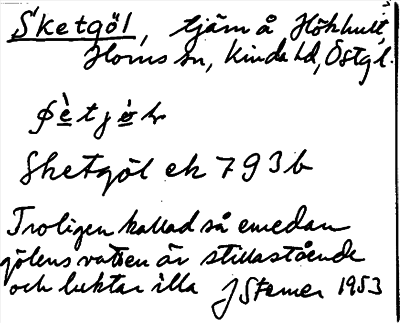 Sketgöl, tjärn å Hökhult,
Horns sn, Kinda hd, Östgl.
Sketgöl ek 793b
Troligen kallad så emedan
gölens vatten är stillastående
och luktar illa J Stamer 1953